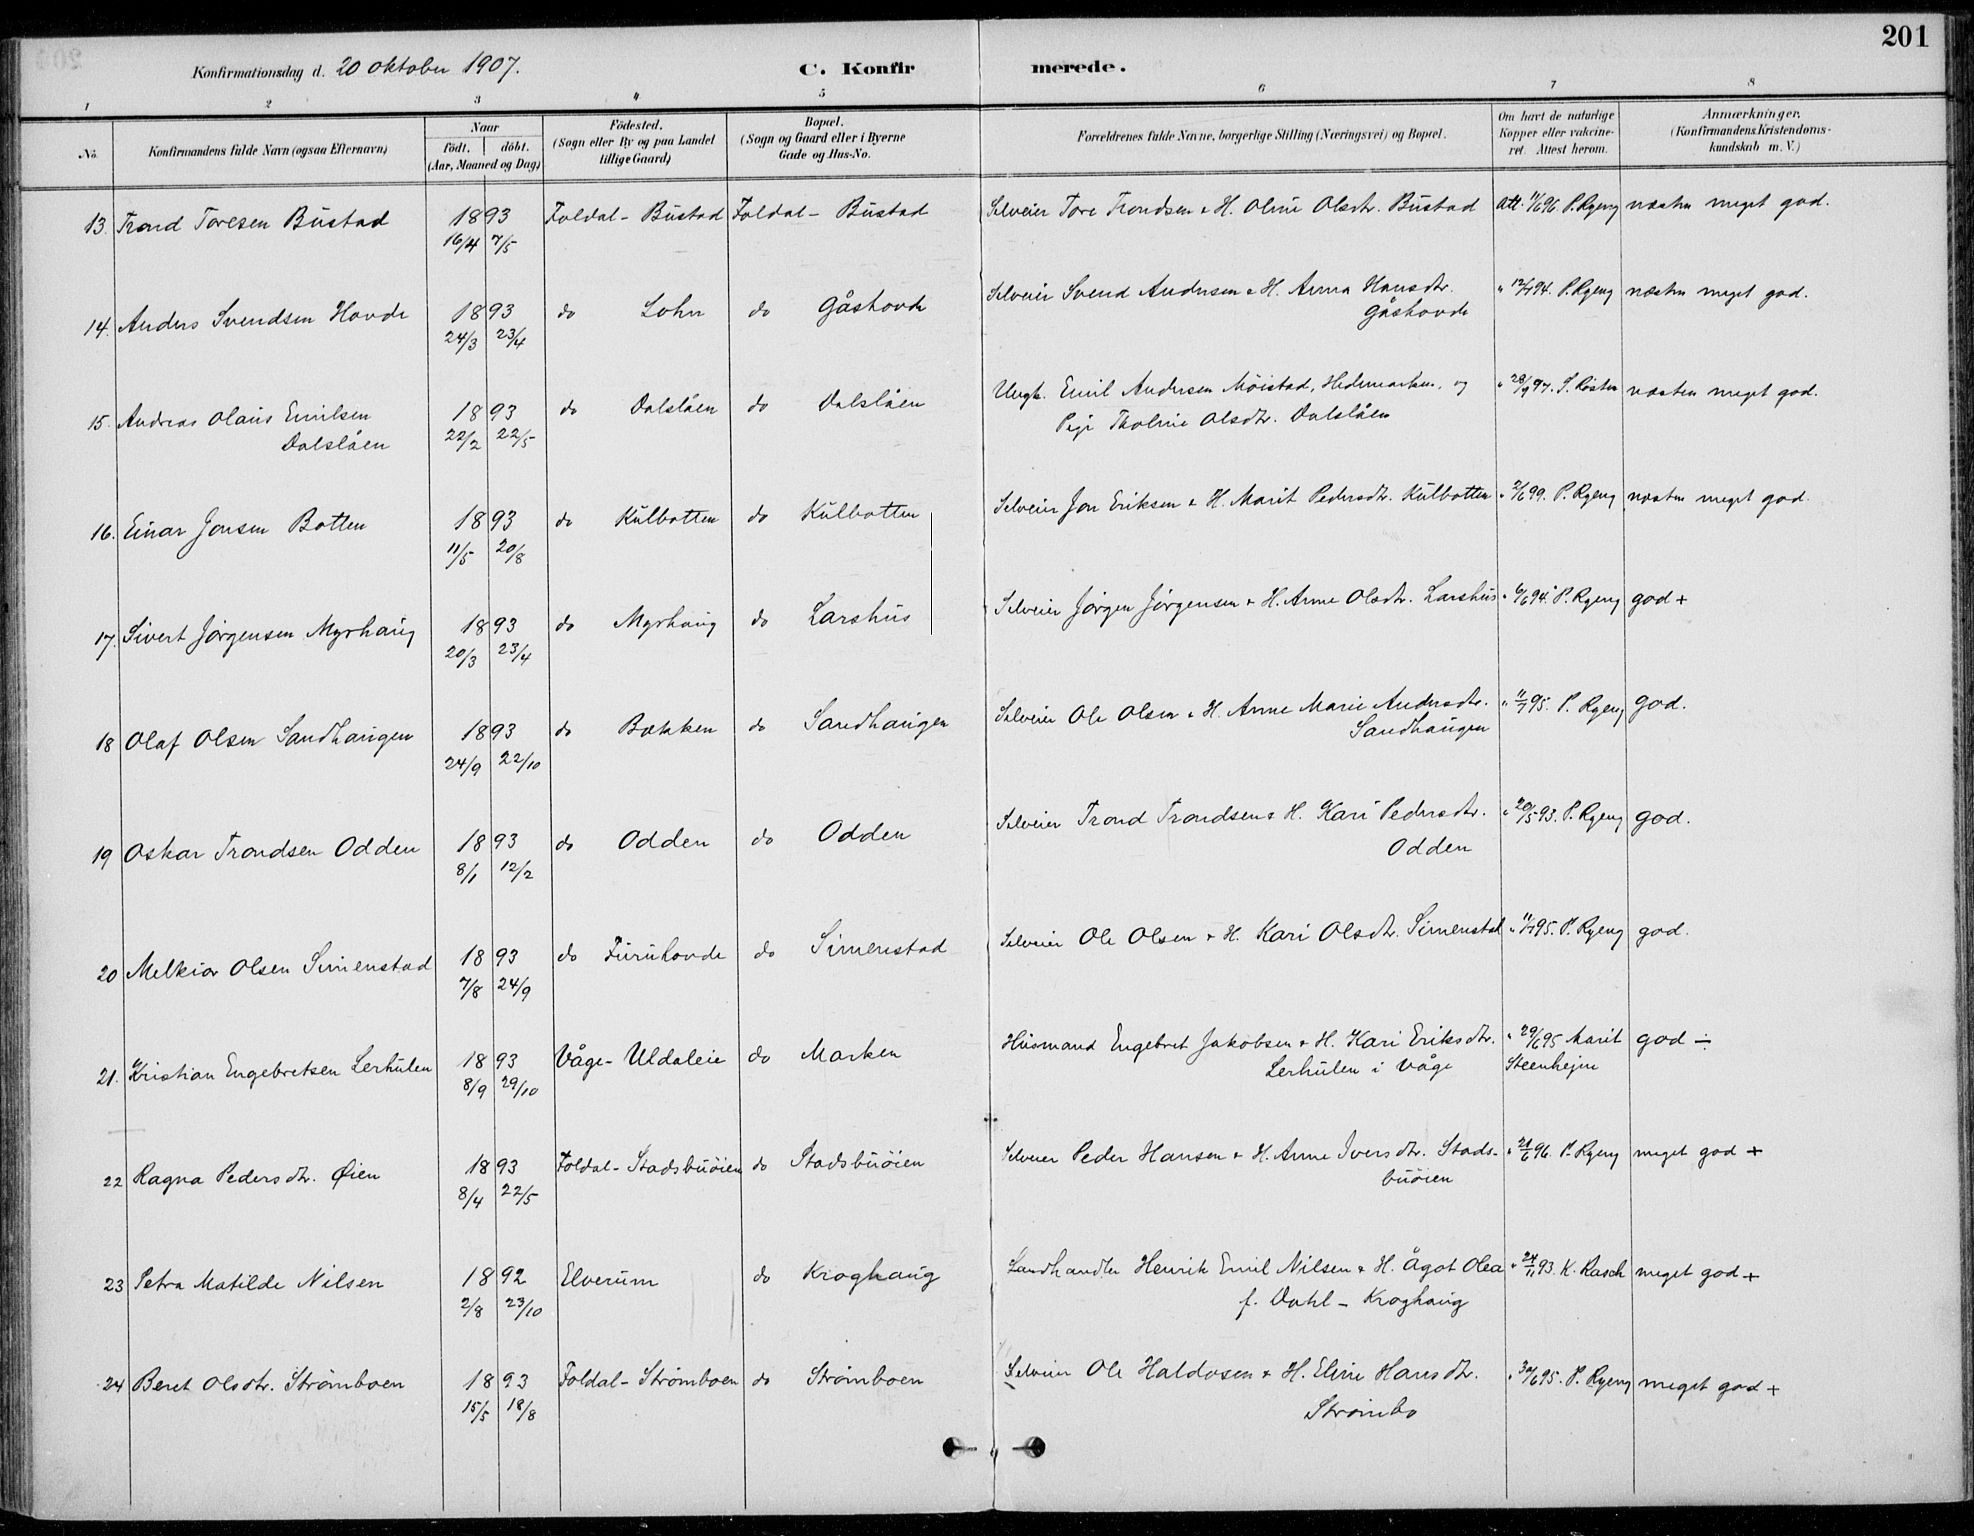 201
Konfirmationsdag d. 20 oktober 1907.
C. Konfir merede.
1 2 3 4 5 6 7 8
No.
Konfirmandens fulde Navn (ogsaa Efternavn)
Naar
födt. döbt.
(Aar, Maaned og Dag)
Födested.
(Sogn eller By og paa Landet
tillige Gaard)
Bopæl.
(Sogn og Gaard eller i Byerne
Gade og Hus-No.
Forældrenes fulde Navne, borgerlige Stilling (Næringsvei) og Bopæl.
Om havt de naturlige
Kopper eller vakcine-
ret. Attest herom.
Anmærkninger.
(Konfirmandens Kristendoms-
kundskab m. V.)
13. Trond Toresen Bustad 1893 Foldal - Bustad Foldal - Bustad Selveier Tore Trondsen & H. Oline Olsdtr. Bustad Att. 11/6 96 P. Ryeng næsten meget god.
16/4 7/5
14. Anders Svendsen Hovde 1893 do Lohn do Gåshovde Selveier Svend Andersen & H. Anna Hansdtr. " 94. P. Ryeng næsten meget god.
24/3 23/4 Gåshovde
15. Andreas Olaus Emilsen 1893 do Dalslåen do Dalslåen Ungk. Emil Andersen Möistad, Hedemarken, og " 28/9 97. S. Rosten næsten meget god.
Dalslåen 22/2 22/5 Pige Tholine Olsdtr. Dalslåen
16. Einar Jonsen Botten 1893 do Kulbotten do Kulbotten Selveier Jon Eriksen & H. Marit Pedersdtr. Kulbotten " 2/6 99. P. Ryeng næsten meget god.
11/5 20/8
17. Sivert Jörgensen Myrhaug 1893 do Myrhaug do Larshus Selveier Jörgen Jörgensen & H. Anne Olsdtr. Larshus " 6/6 94. P. Ryeng god +
20/3 23/4
18 Olaf Olsen Sandhaugen 1893 do Bækken do Sandhaugen Selveier Ole Olsen & H. Anne Marie Andersdtr. " 11/7 95. P. Ryeng god.
24/9 22/10 Sandhaugen
19 Oskar Trondsen Odden 1893 do Odden do Odden Selveier Trond Trondsen & H. Kari Pedersdtr. " 20/5 93. P. Ryeng god.
8/1 12/2 Odden
20 Melkior Olsen Simenstad 1893 do Furuhovde do Simenstad Selveier Ole Olsen & H. Kari Olsdtr. Simenstad " 11/7 95. P. Ryeng god.
7/8 24/9
21. Kristian Engebretsen Lerhulen 1893 Våge - Uldaleie do Marken Husmand Engebret Jakobsen & H. Kari Eriksdtr. " 29/6 95 Marit god ÷
8/9 29/10 Lerhulen i Våge Steenhejen
22 Ragna Pedersdtr. Øien 1893 Foldal - Stadsbuöien do Stadsbuöien Selveier Peder Hansen & H. Anne Iversdtr. Stads- " 21/6 96. P. Ryeng meget god +
8/4 22/5 buöien
23 Petra Matilde Nilsen 1892 Elverum do Kroghaug Landhandler Henrik Emil Nilsen & H. Ågot Olea " 24/11 93. K. Rasch meget god +
2/8 23/10 f. Dahl - Kroghaug
24 Beret Olsdtr. Strömboen 1893 Foldal - Strömboen do Strömboen Selveier Ole Haldosen & H. Eline Hansdtr. " 30/6 95. P. Ryeng meget god +
15/5 18/8 Strömbo